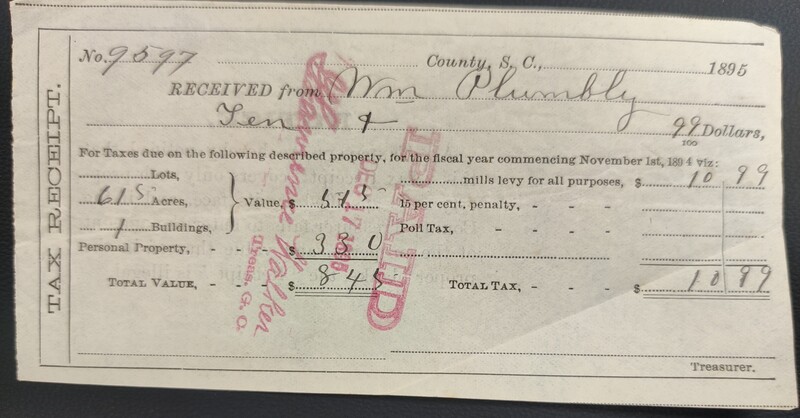 TAX RECEIPT.
No. 9597 County, S. C., 1895
RECEIVED from Wm Plumbly
Ten & 99/100 Dollars,
For Taxes due on the following described property, for the fiscal year commencing November 1st, 1894 viz:
Lots, mills levy for all purposes, $ 10 99
615 Acres, Value, $ 515 15 per cent, penalty - - -
1 Buildings, Poll Tax, - - - -
Personal Property, - - $ 330
TOTAL VALUE, - - - $ 845 TOTAL TAX, - - - $ 10 99
Treasurer.
PAID
DEC 17 1895
Walker
Treas. G. C.